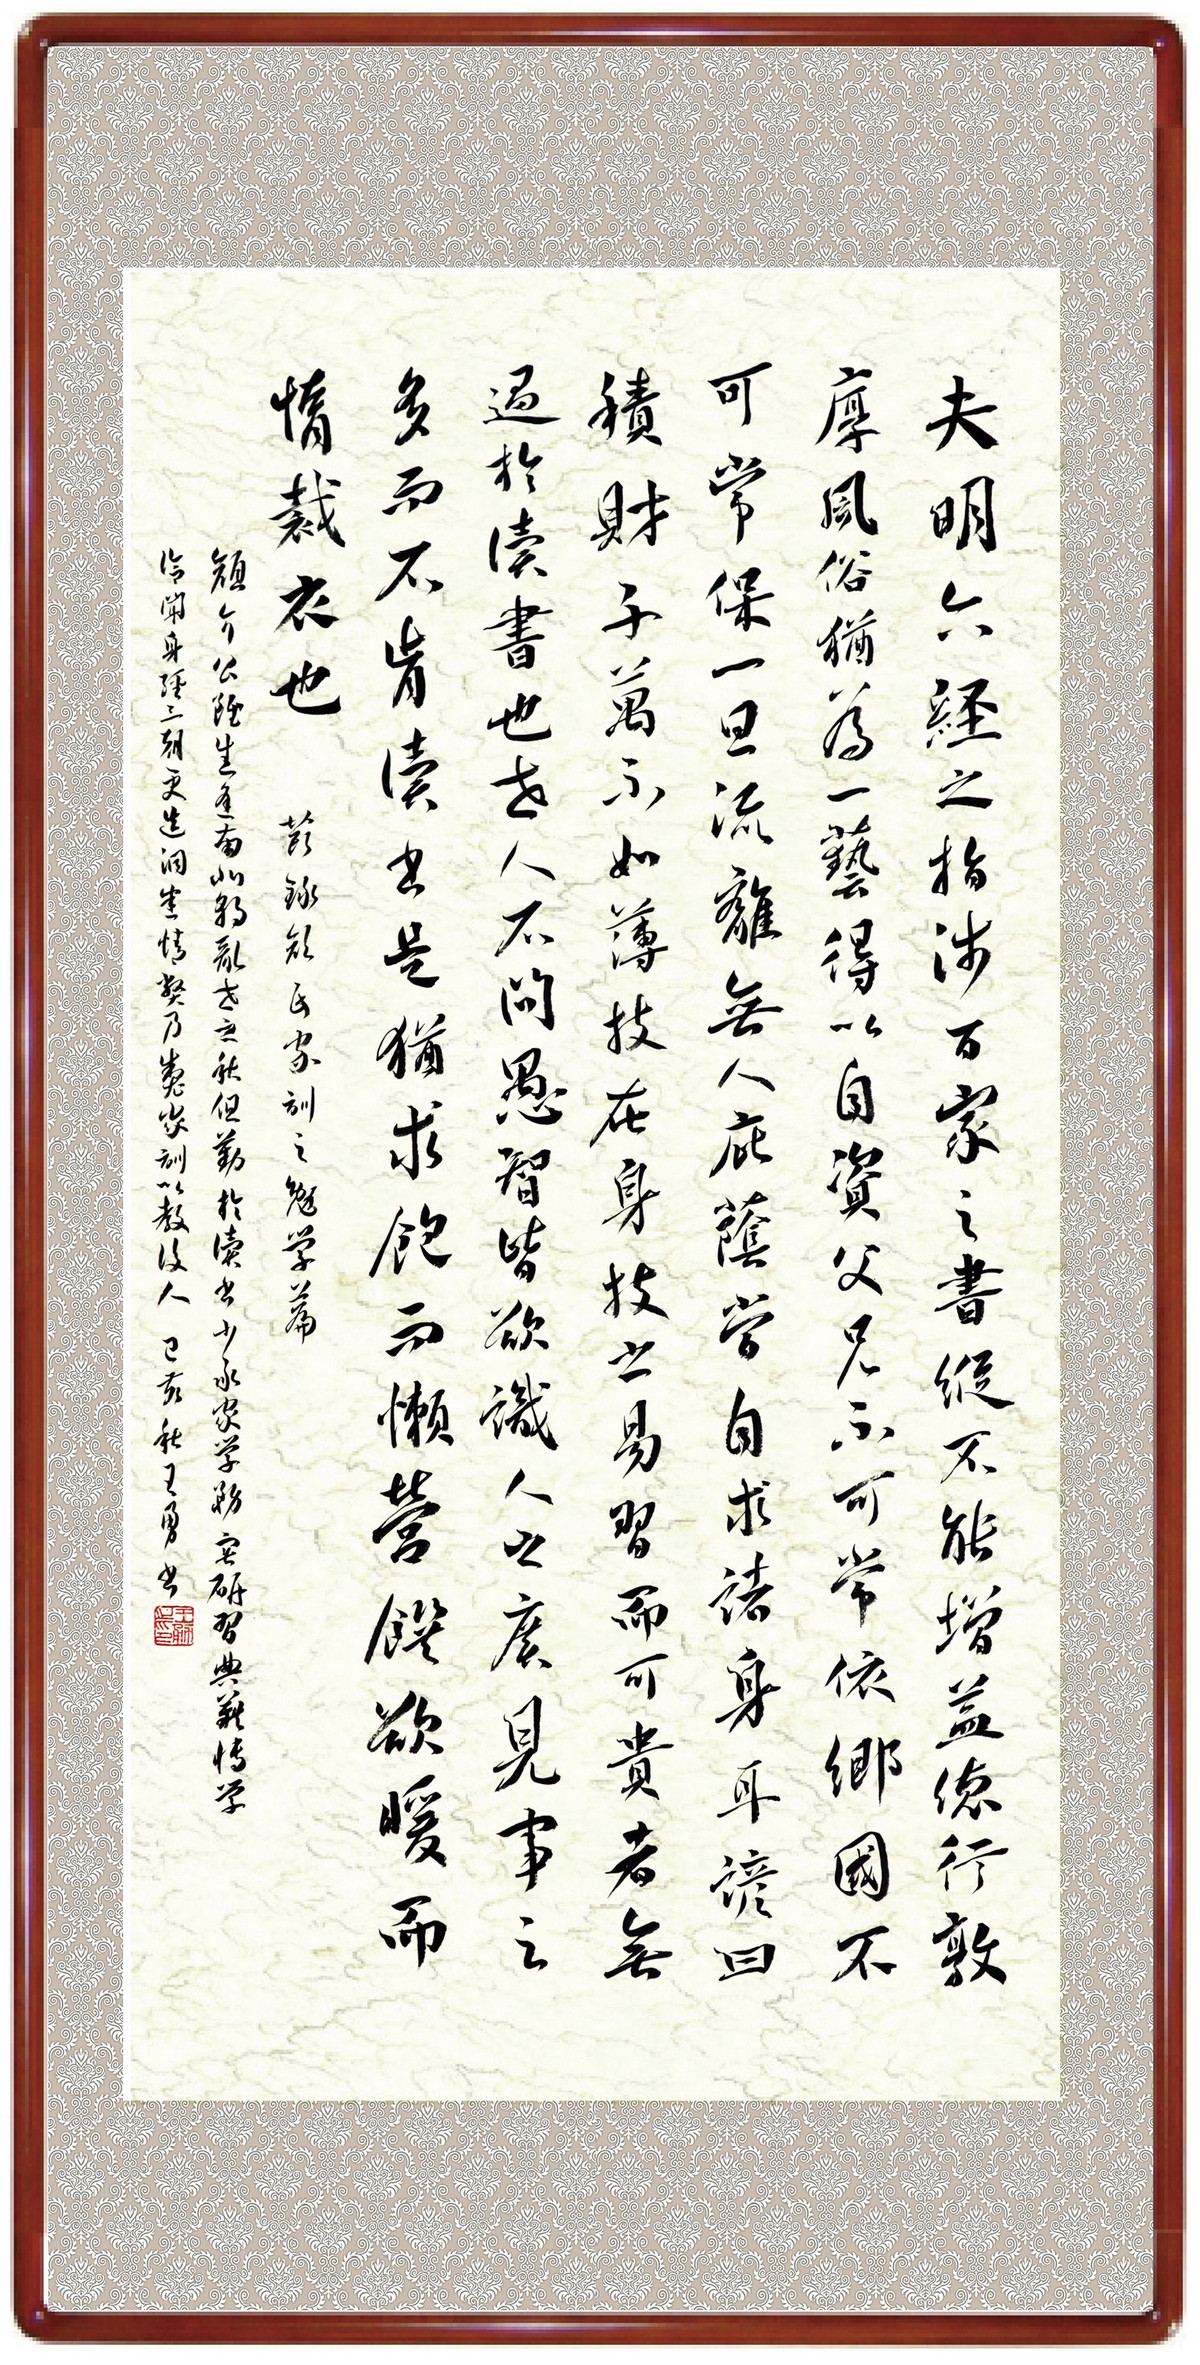 夫明六經之指涉百家之書縱不能增益德行敦
厚風俗猶為一藝得以自資父兄不可常依鄉國不
可常保一旦流離無人庇蔭當自求諸身耳諺曰
積財千萬不如薄技在身技之易習而可貴者無
過於讀書也世人不問愚智皆欲識人之廣見事之
多而不肯讀书是猶求飽而懶營饌欲暖而
惰裁衣也
節錄顏氏家訓之勉學篇
顏介公雖生逢南北朝亂世之秋但勤於讀书少承家學務實研習典籍博學
洽聞身經三朝更迭洞悉情弊乃製家訓以教後人 己亥秋王勇书